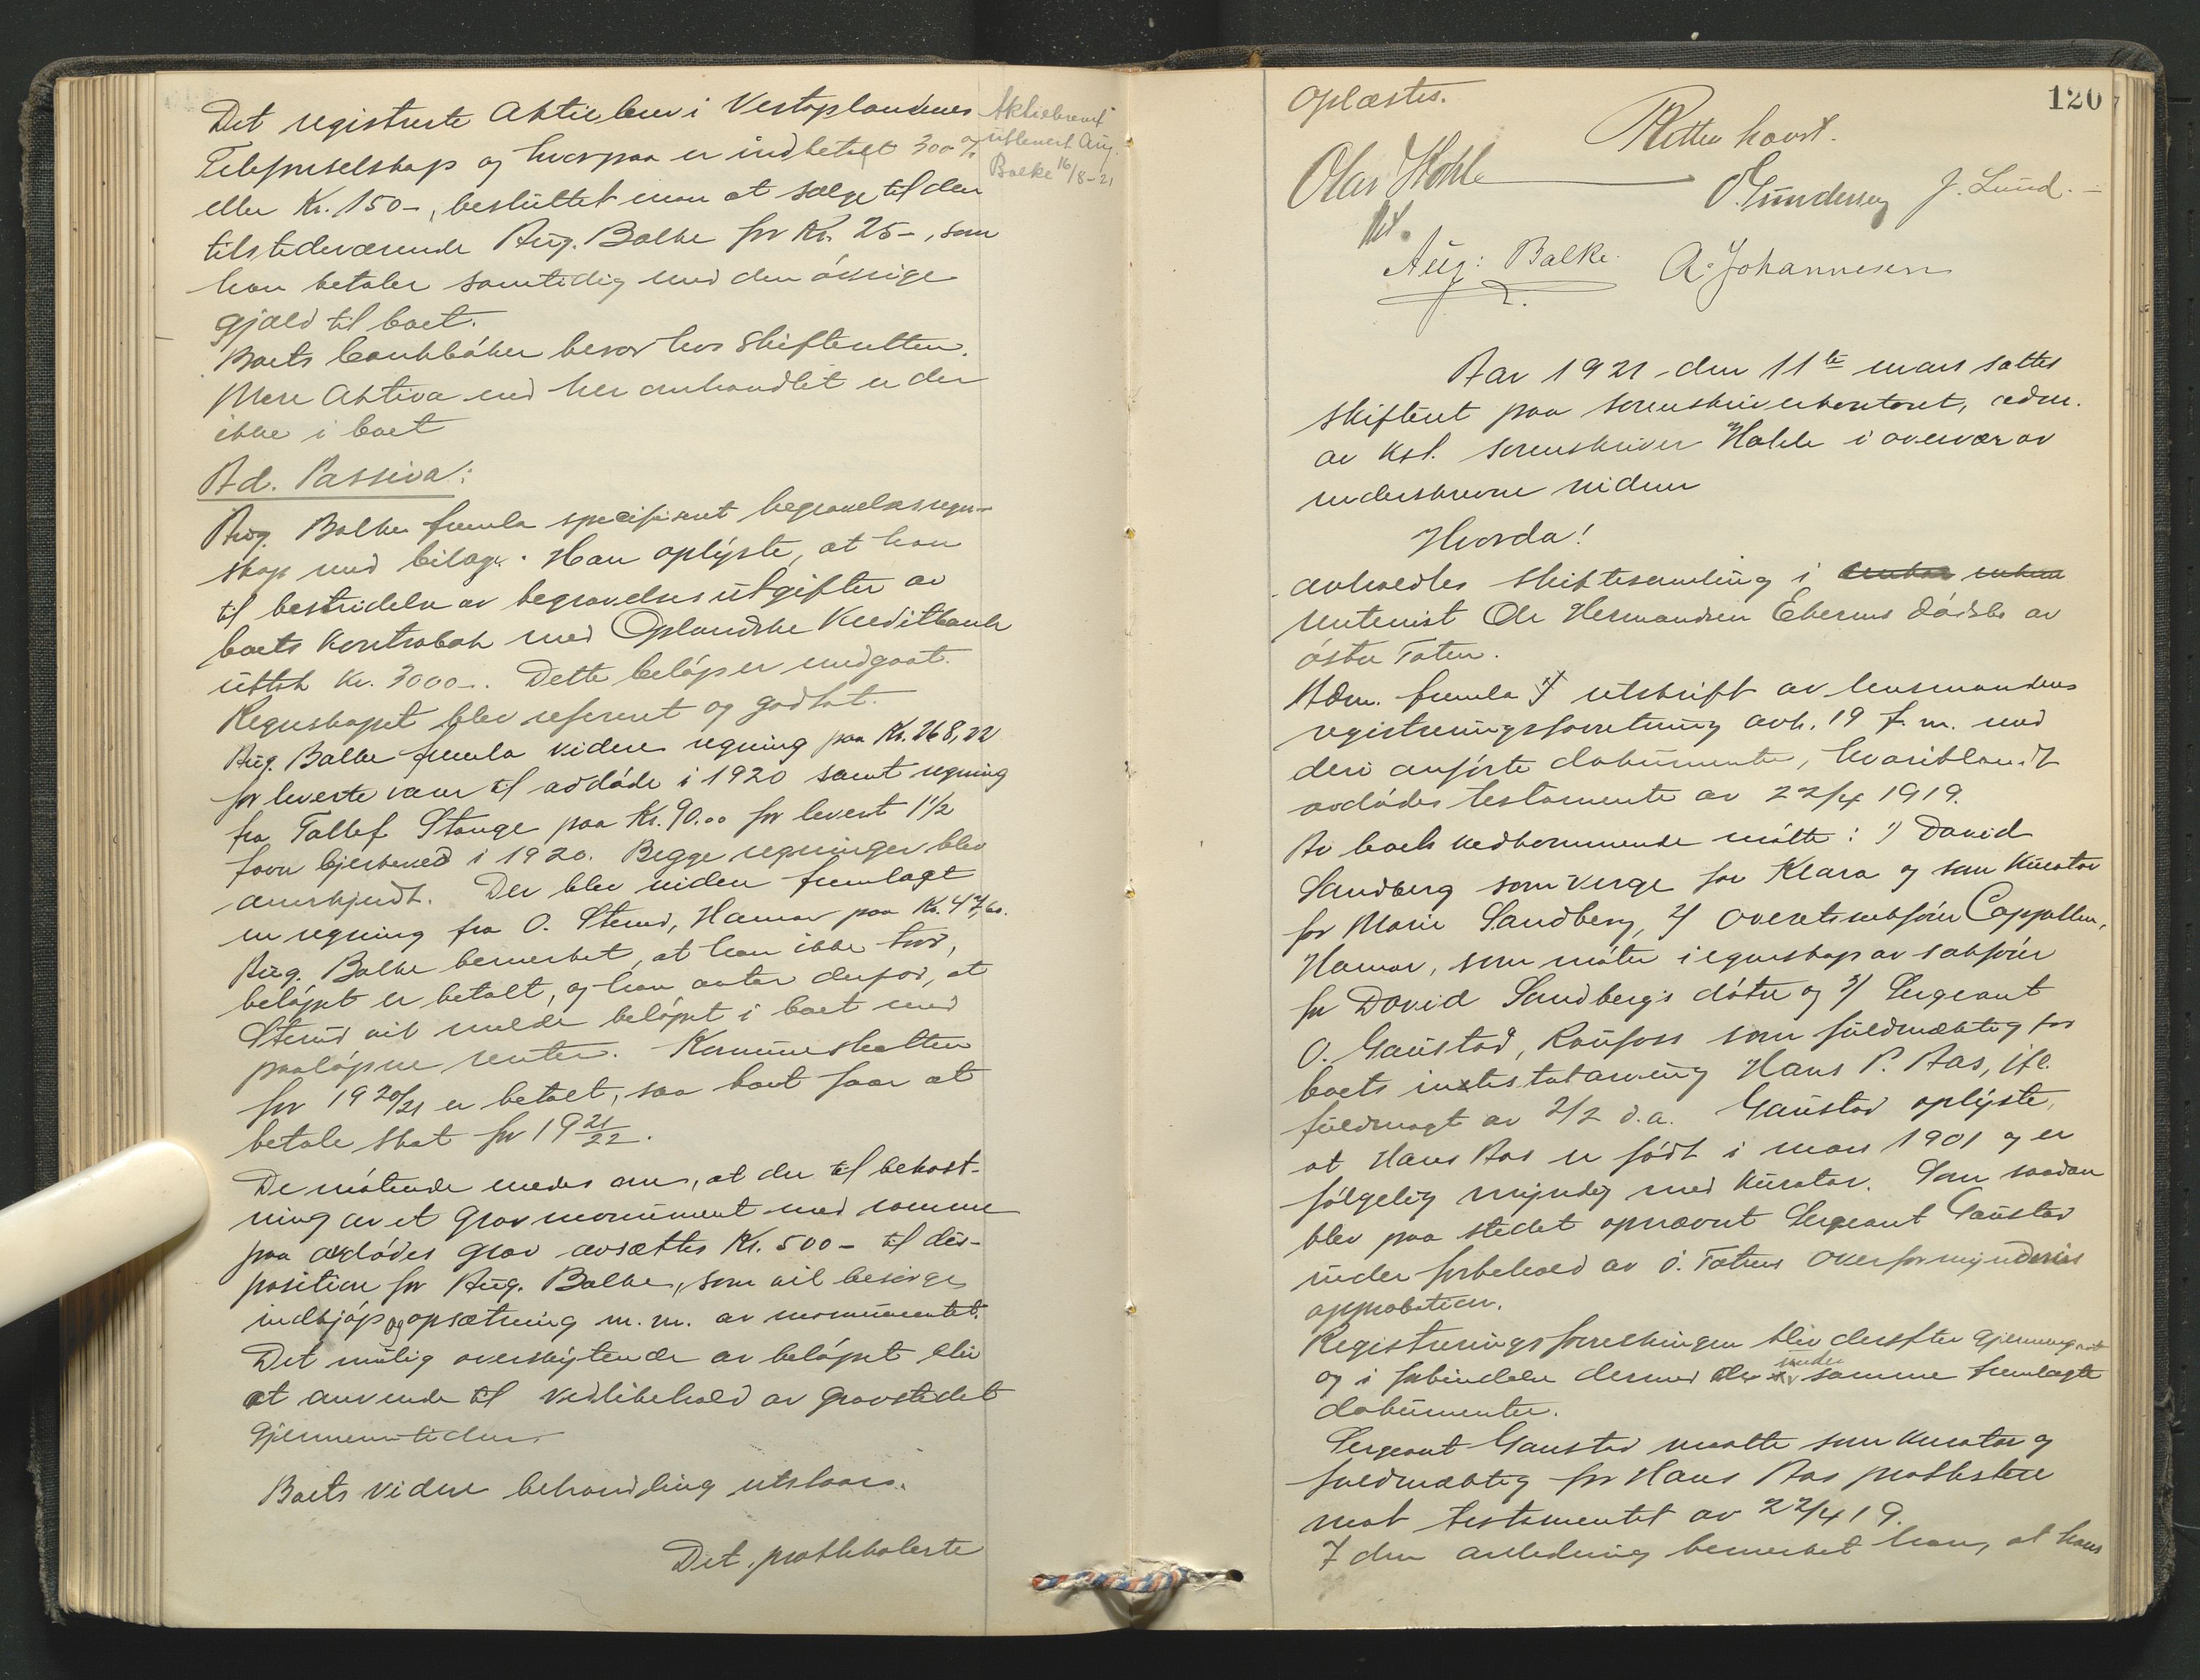 Det registrerte Aktiebrev i Vestoplandenes
Telefonselskap og hvorpaa er indbetalt 300 %
eller Kr. 150-, besluttet man at sælge til den
tilstedeværende Aug. Balke for Kr. 25-, som
han betaler samtidig med den övrige
gjæld til boet.
Boets bankböker beror hos skifteretten.
Mere Aktiva end her omhandlet er der
ikke i boet
Aktiebrevet
utlevert Aug.
Balke 16/8-21
Ad. Passiva:
Aug. Balke fremla specifisert begravelsesregn-
skap med bilag. Han oplyste, at han
til bestridelse av begravelsesutgifter av
boets kontrabok med Oplandske Kreditbank
uttok Kr. 3000-. Dette belöp er medgaat.
Regnskapet blev referert og godkat.
Aug. Balke fremla videre regning paa Kr. 268,22
for leverte varer til avdöde i 1920 samt regning
fra Tollef Stange paa Kr. 90.00 for levert 1 1/2
favn bjerkeved i 1920. Begge regninger blev
anerkjendt. Der blev videre fremlagt
en regning fra O. Stensd, Hamar paa Kr. 47,60.
Aug. Balke bemerket, at han ikke tror,
belöpet er betalt, og han antar derfor, at
vil melde belöpet i boet med
paalöpne renter. Kommuneskatten
for 1920/21 er betalt, saa boet faar at
betale skat for 1921/22.
De mötende enedes om, at der til bekost-
ning av et gravmonument med ramme
paa avdödes grav avsættes Kr. 500- til dis-
position for Aug. Balke, som vil besörge
indkjöp og opsætning m.m. av monumentet.
Det mulig overskytende av belöpet blir
at anvende til vedlikehold av gravstedet
gjennem tiden.
Boets videre behandling utstaar.
Det protokolerte
120
oplæstes.
Retten hævet.
Olav Hohle
O. Gundersen J. Lund.
Aug: Balke. A. Johannesen
Aar 1921 den 11te mars sattes
skifteret paa sorenskriverkontoret, adm.
av kst. sorenskriver Hohle i overvær av
underskrevne vidner
Hvorda!
avholdtes skiftesamling i
rentenist Ole Hermandsen Ekerens dödsbo av
östre Toten.
Adm. fremla 1) utskrift av lensmandens
registreringsforretning avh. 19 f. m. med
deri anförte dokumenter, hvoriblandt
avdödes testamente av 22/4 1919.
Av boets vedkommende mötte: 1) David
Sandberg som verge for Klara og som kurator
for Marie Sandberg, 2) overretssakförer Cappellen,
Hamar, som möter i egenskap av sakförer
for David Sandberg's dötre og 3) Sergeant
O. Gaustad, Raufoss som fuldmægtig for
boets intestatarving Hans P. Aas, jfr.
fuldmagt av 2/2 d.a. Gaustad oplyste,
at Hans Aas er födt i mars 1901 og er
fölgelig myndig med kurator. Som saadan
blev paa stedet opnævnt Sergeant Gaustad
under forbehold av Ö. Totens overformynderies
approbation.
Registreringsforretningen blev derefter gjennemgaat
og i forbindelse dermed de under samme fremlagte
dokumenter.
Sergeant Gaustad maatte som kurator og
fuldmægtig for Hans Aas protestere
mot testamentet av 22/4 19.
I den anledning bemerket han, at hans